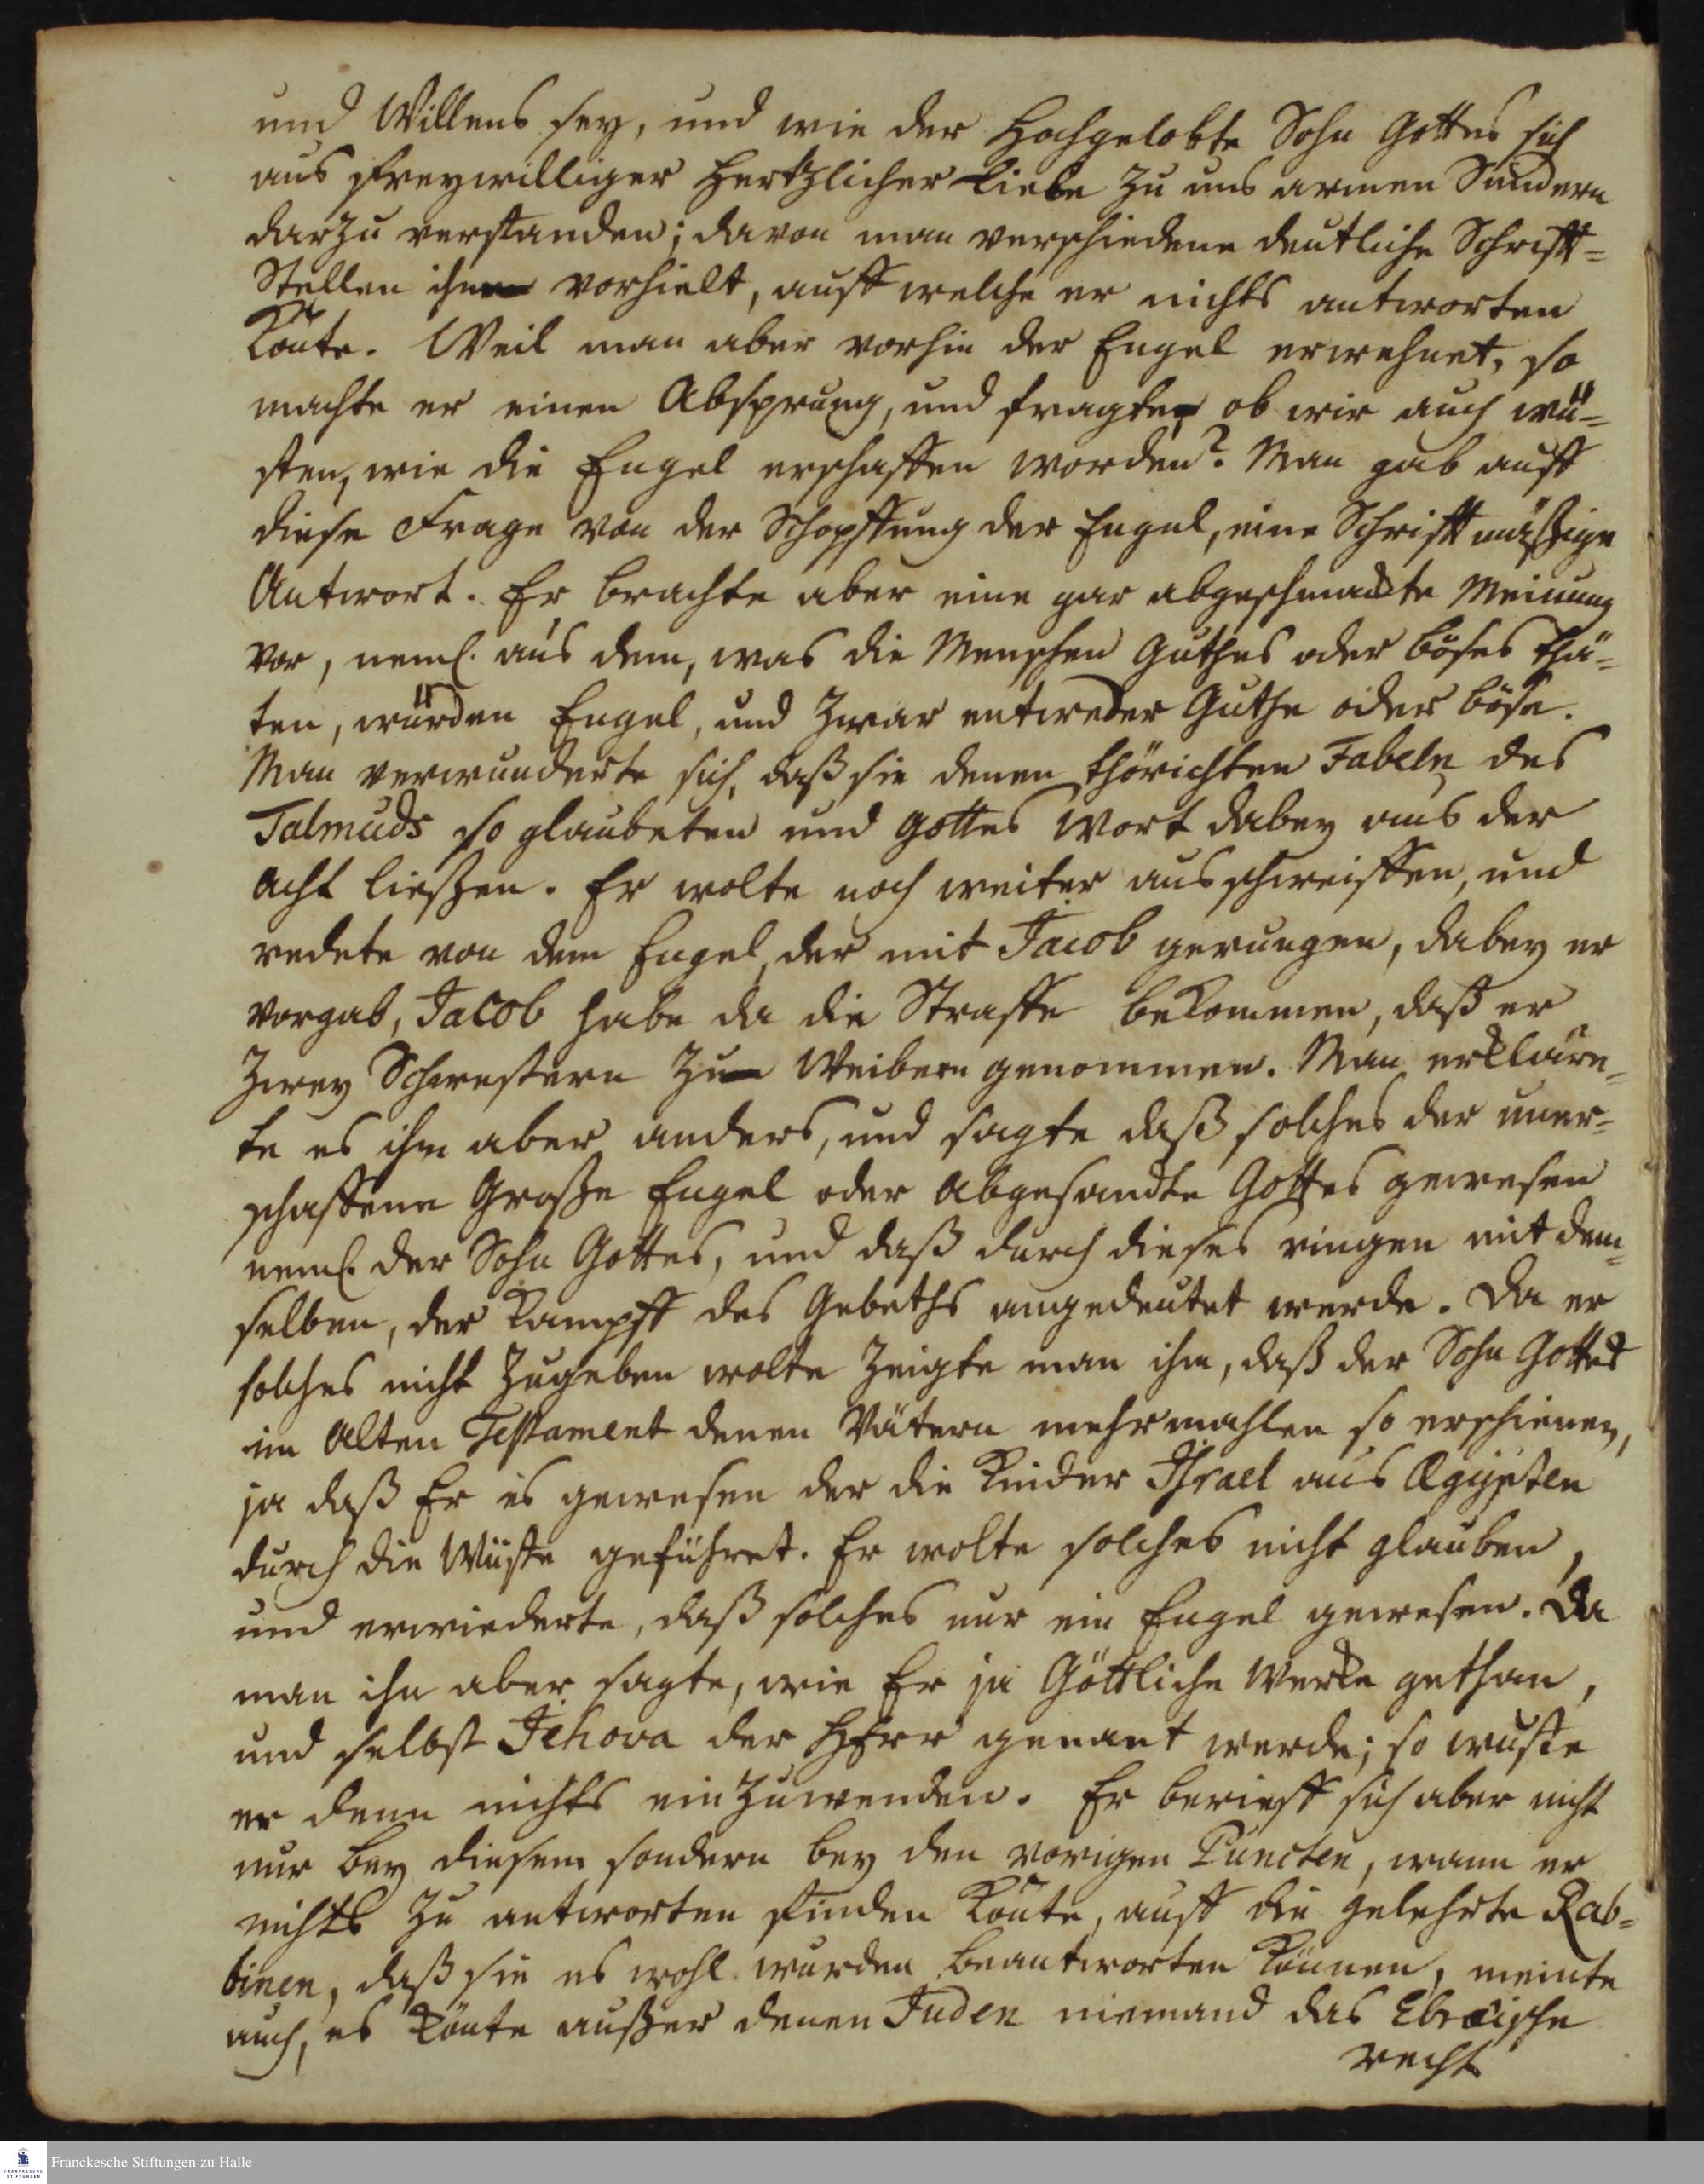 und Willens sey, und wie der Hochgelobte Sohn Gottes sich
aus freywilliger Hertzlicher Liebe zu uns armen Sündern
darzu verstanden; davon man verschiedene deutliche Schrifft=
Stellen ihm vorhielt, auff welche er nichts antworten
könte. Weil man aber vorhin der Engel erwehnet, so
machte er einen Absprung, und fragte, ob wir auch wü=
sten, wie die Engel erschaffen worden? Man gab auff
diese Frage von der Schöpffung der Engel, eine Schrifftmäßige
Antwort. Er brachte aber eine gar abgeschmackte Meinung
vor, neml. aus dem, was die Menschen Guthes oder böses thä=
ten, würden Engel, und zwar entweder Guthe oder böse.
Man verwunderte sich, daß sie denen thörichten Fabeln des
Talmuds so glaubeten und Gottes Wort dabey aus der
Acht ließen. Er wolte noch weiter ausschweiffen, und
redete von dem Engel, der mit Jacob gerungen, dabey er
vorgab, Jacob habe da die Straffe bekommen, daß er
zwey Schwestern zu Weibern genommen. Man erkläre=
te es ihm aber anders, und sagte daß solches der uner=
schaffene Große Engel oder Abgesandte Gottes gewesen
neml. der Sohn Gottes, und daß durch dieses ringen mit dem=
selben, der Kampff des Gebeths angedeutet werde. Da er
solches nicht zugeben wolte zeigte man ihm, daß der Sohn Gottes
im Alten Testament denen Vätern mehrmahlen so erschienen,
ja daß Er es gewesen der die Kinder Israel aus Ægypten
durch die Wüste geführet. Er wolte solches nicht glauben,
und erwiederte, daß solches nur ein Engel gewesen. Da
man ihn aber sagte, wie Er ja Göttliche Werke gethan,
und selbst Jehova der HErr genant werde; so wuste
er denn nichts einzuwenden. Er berieff sich aber nicht
nur bey diesem sondern bey den vorigen Puncten, wann er
nichts zu antworten finden könte, auff die gelehrte Rab=
binen, daß sie es wohl würden beantworten können, meinte
auch, es könte außer denen Juden niemand das Ebræische
recht
Franckesche Stiftungen zu Halle
FRANCKESCHE
STIFTUNGEN